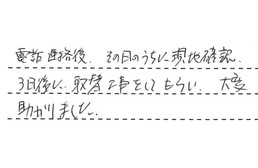 電話連絡後、その日のうちに現地確認、
3日後に、取替工事をしてもらい、大変
助かりました。